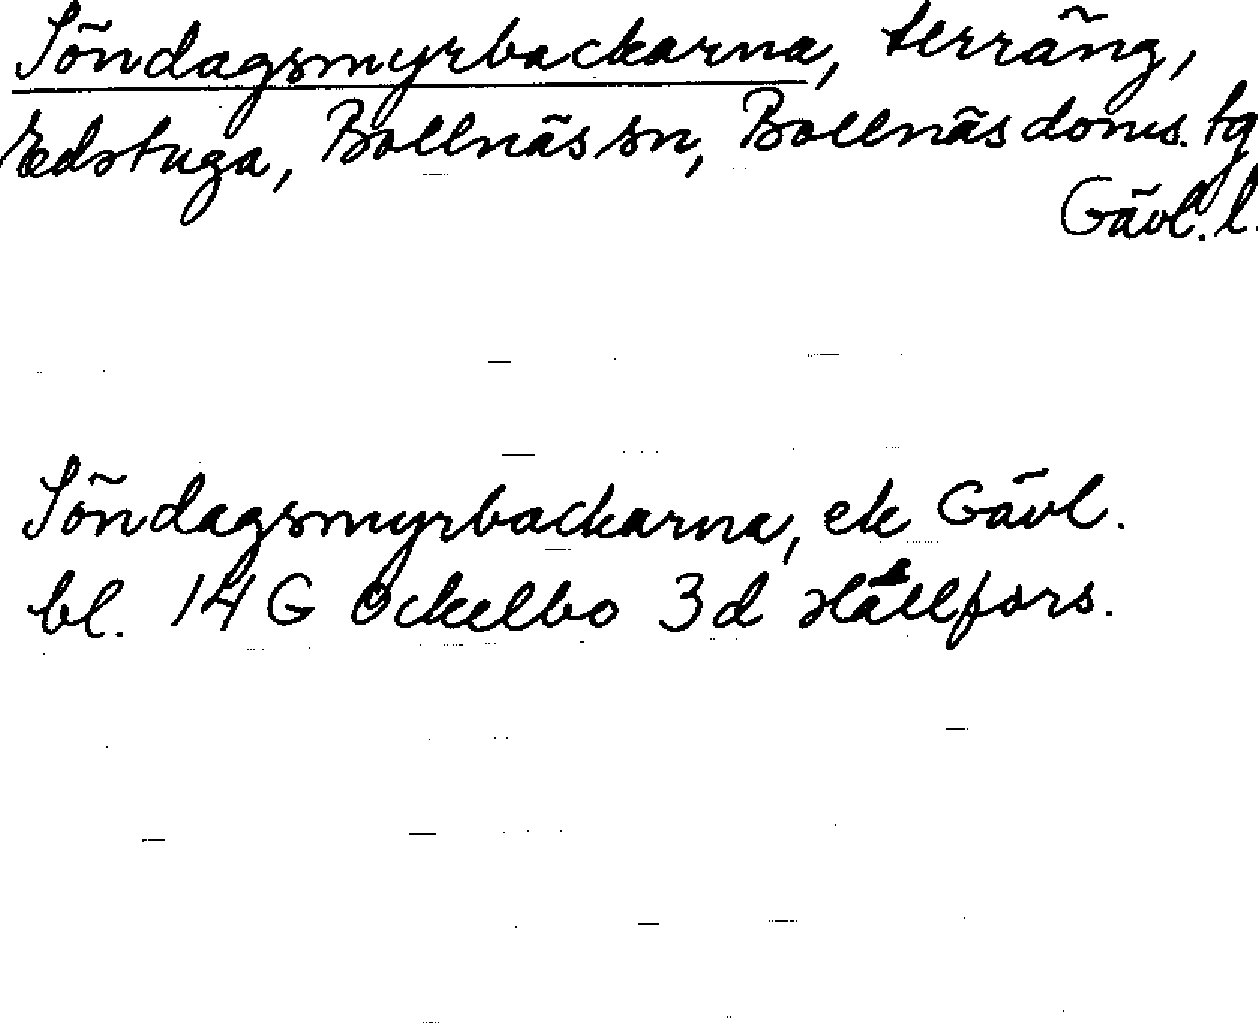 Söndagsmyrbackarna, terräng,
Edstuga, Bollnäs sn, Bollnäs doms. tg
Gävl. l.
Söndagsmyrbackarna, ek Gävl.
bl. 14 G Ockelbo 3d Hällfors.